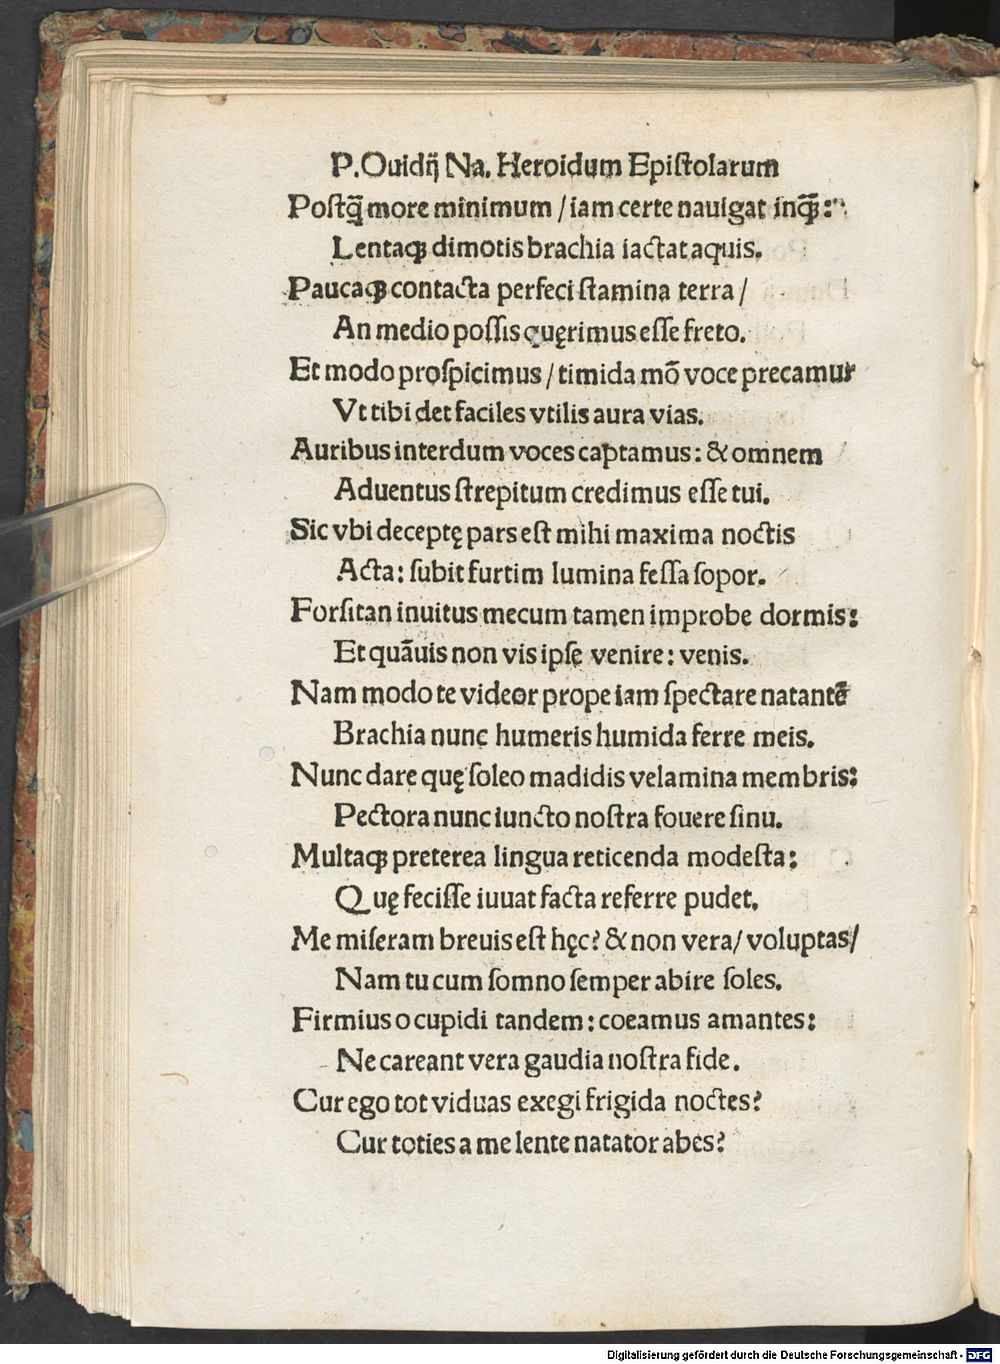 P.Ouidij Na. Heroidum Epistolarum
Postq̃ more minimum / iam certe nauigat inq̃ꝫ:
Lentaqꝫ dimotis brachia iactat aquis.
Paucaqꝫ contacta perfeci ſtamina terra /
An medio poſſis quęrimus eſſe freto.
Et modo proſpicimus / timida mõ voce precamur
Vt tibi det faciles vtilis aura vias.
Auribus interdum voces captamus: & omnem
Aduentus ſtrepitum credimus eſſe tui.
Sic vbi deceptę pars eſt mihi maxima noctis
Acta: ſubit furtim lumina feſſa ſopor.
Forſitan inuitus mecum tamen improbe dormis:
Et quãuis non vis ipſe venire: venis.
Nam modo te videor prope iam ſpectare natantẽ
Brachia nunc humeris humida ferre meis.
Nunc dare quę ſoleo madidis velamina membris:
Pectora nunc iuncto noſtra fouere ſinu.
Multaqꝫ preterea lingua reticenda modeſta:
Quę feciſſe iuuat facta referre pudet.
Me miſeram breuis eſt hęc? & non vera / voluptas /
Nam tu cum ſomno ſemper abire ſoles.
Firmius o cupidi tandem: coeamus amantes:
Ne careant vera gaudia noſtra fide.
Cur ego tot viduas exegi frigida noctes?
Cur toties a me lente natator abes?
Digitalisierung gefördert durch die Deutsche Forschungsgemeinschaft - DFG